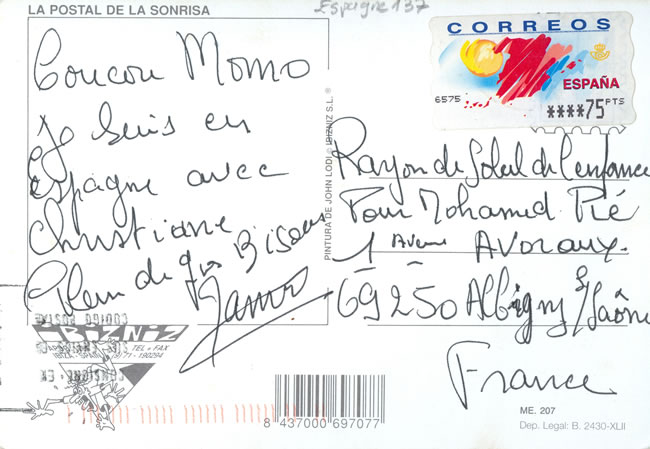 LA POSTAL DE LA SONRISA
Espagne 137
Coucou Momo
Je suis en
espagne avec
christiane
Plein de gros Bisous
PINTURA DE JOHN LODI © IBIZNIZ S.L. ®
CORREOS
ESPAÑA
6575
****75 PTS
Rayon de Soleil de l'enfance
Pour Mohamed Pié
1 Avenue Avoraux.
69250 Albigny s/Saône
France
IBIZNIZ
TEL + FAX
8 437000 697077
ME. 207
Dep. Legal: B. 2430-XLII